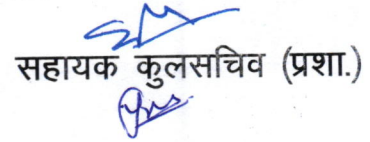 सहायक कुलसचिव (प्रशा.)